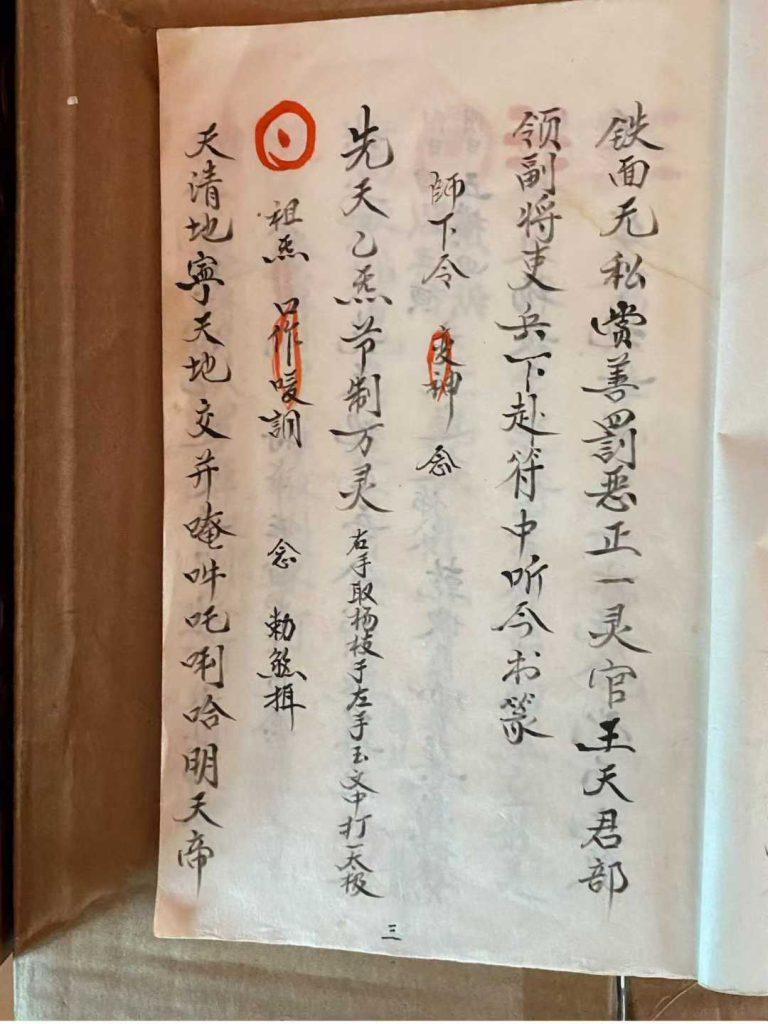 铁面无私赏善罚恶正一灵官王天君部
领副将吏兵下赴符中听令书篆
師下令 变神 念
先天乙炁节制万灵 右手取杨枝于左手玉文中打一太极
祖炁 口作嗳訓 念 勅煞揖
天清地寧天地交并唵吽吒唎哈明天帝
三